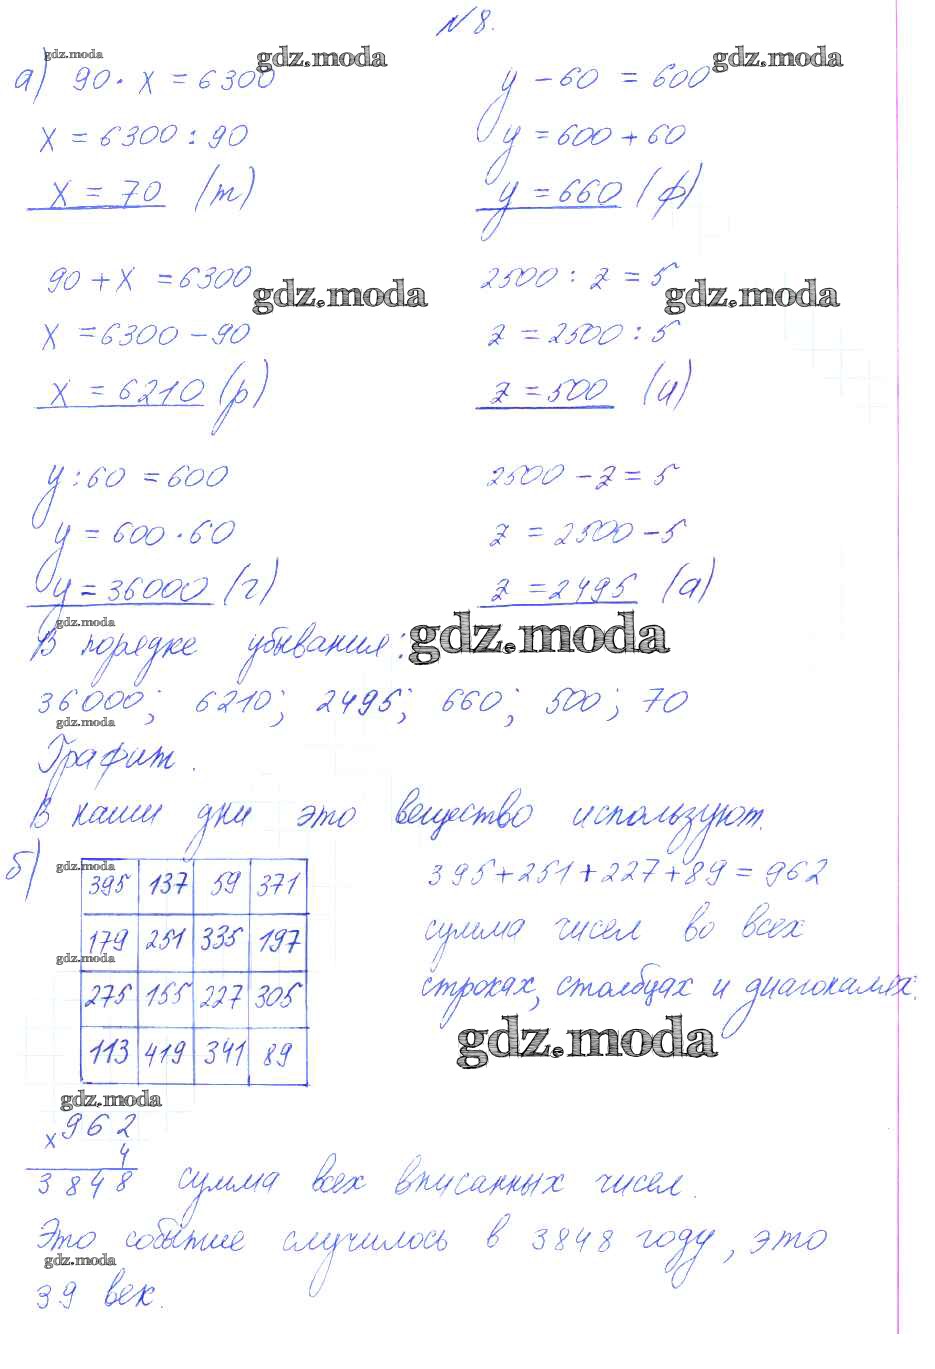 N 8.
gdz.moda gdz.moda gdz.moda
а) 90 · x = 6300
x = 6300 : 90
x = 70 (т)
y - 60 = 600
y = 600 + 60
y = 660 (ф)
90 + x = 6300
x = 6300 - 90
x = 6210 (р)
gdz.moda gdz.moda
2500 : z = 5
z = 2500 : 5
z = 500 (и)
y : 60 = 600
y = 600 · 60
y = 36000 (г)
2500 - z = 5
z = 2500 - 5
z = 2495 (а)
gdz.moda gdz.moda
В порядке убывания:
36000; 6210; 2495; 660; 500; 70
gdz.moda
Графит.
В наши дни это вещество используют.
б)
gdz.moda
395 137 59 371
179 251 335 197
gdz.moda
275 155 227 305
113 419 341 89
395 + 251 + 227 + 89 = 962
сумма чисел во всех
строках, столбцах и диагоналях.
gdz.moda
gdz.moda
x 962
4
3848 сумма всех вписанных чисел.
Это событие случилось в 3848 году, это
gdz.moda
39 век.